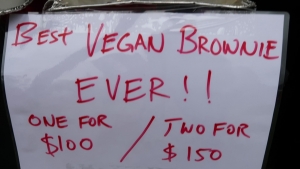 Best VEGAN BROWNIE
EVER!!
ONE FOR / TWO FOR
$100 $150